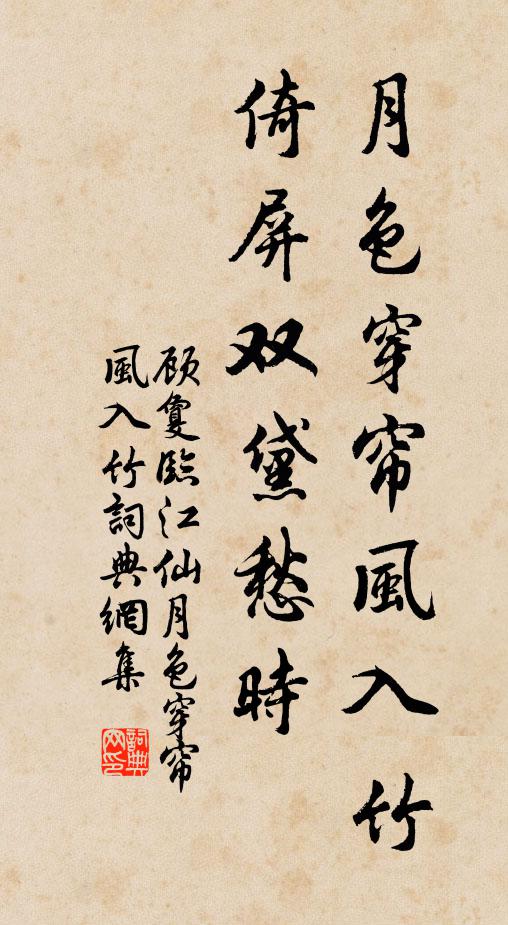 月色穿帘風入竹
倚屏双黛愁時
顾夐臨江仙月色穿帘
風入竹詞典網集
詞典
网印